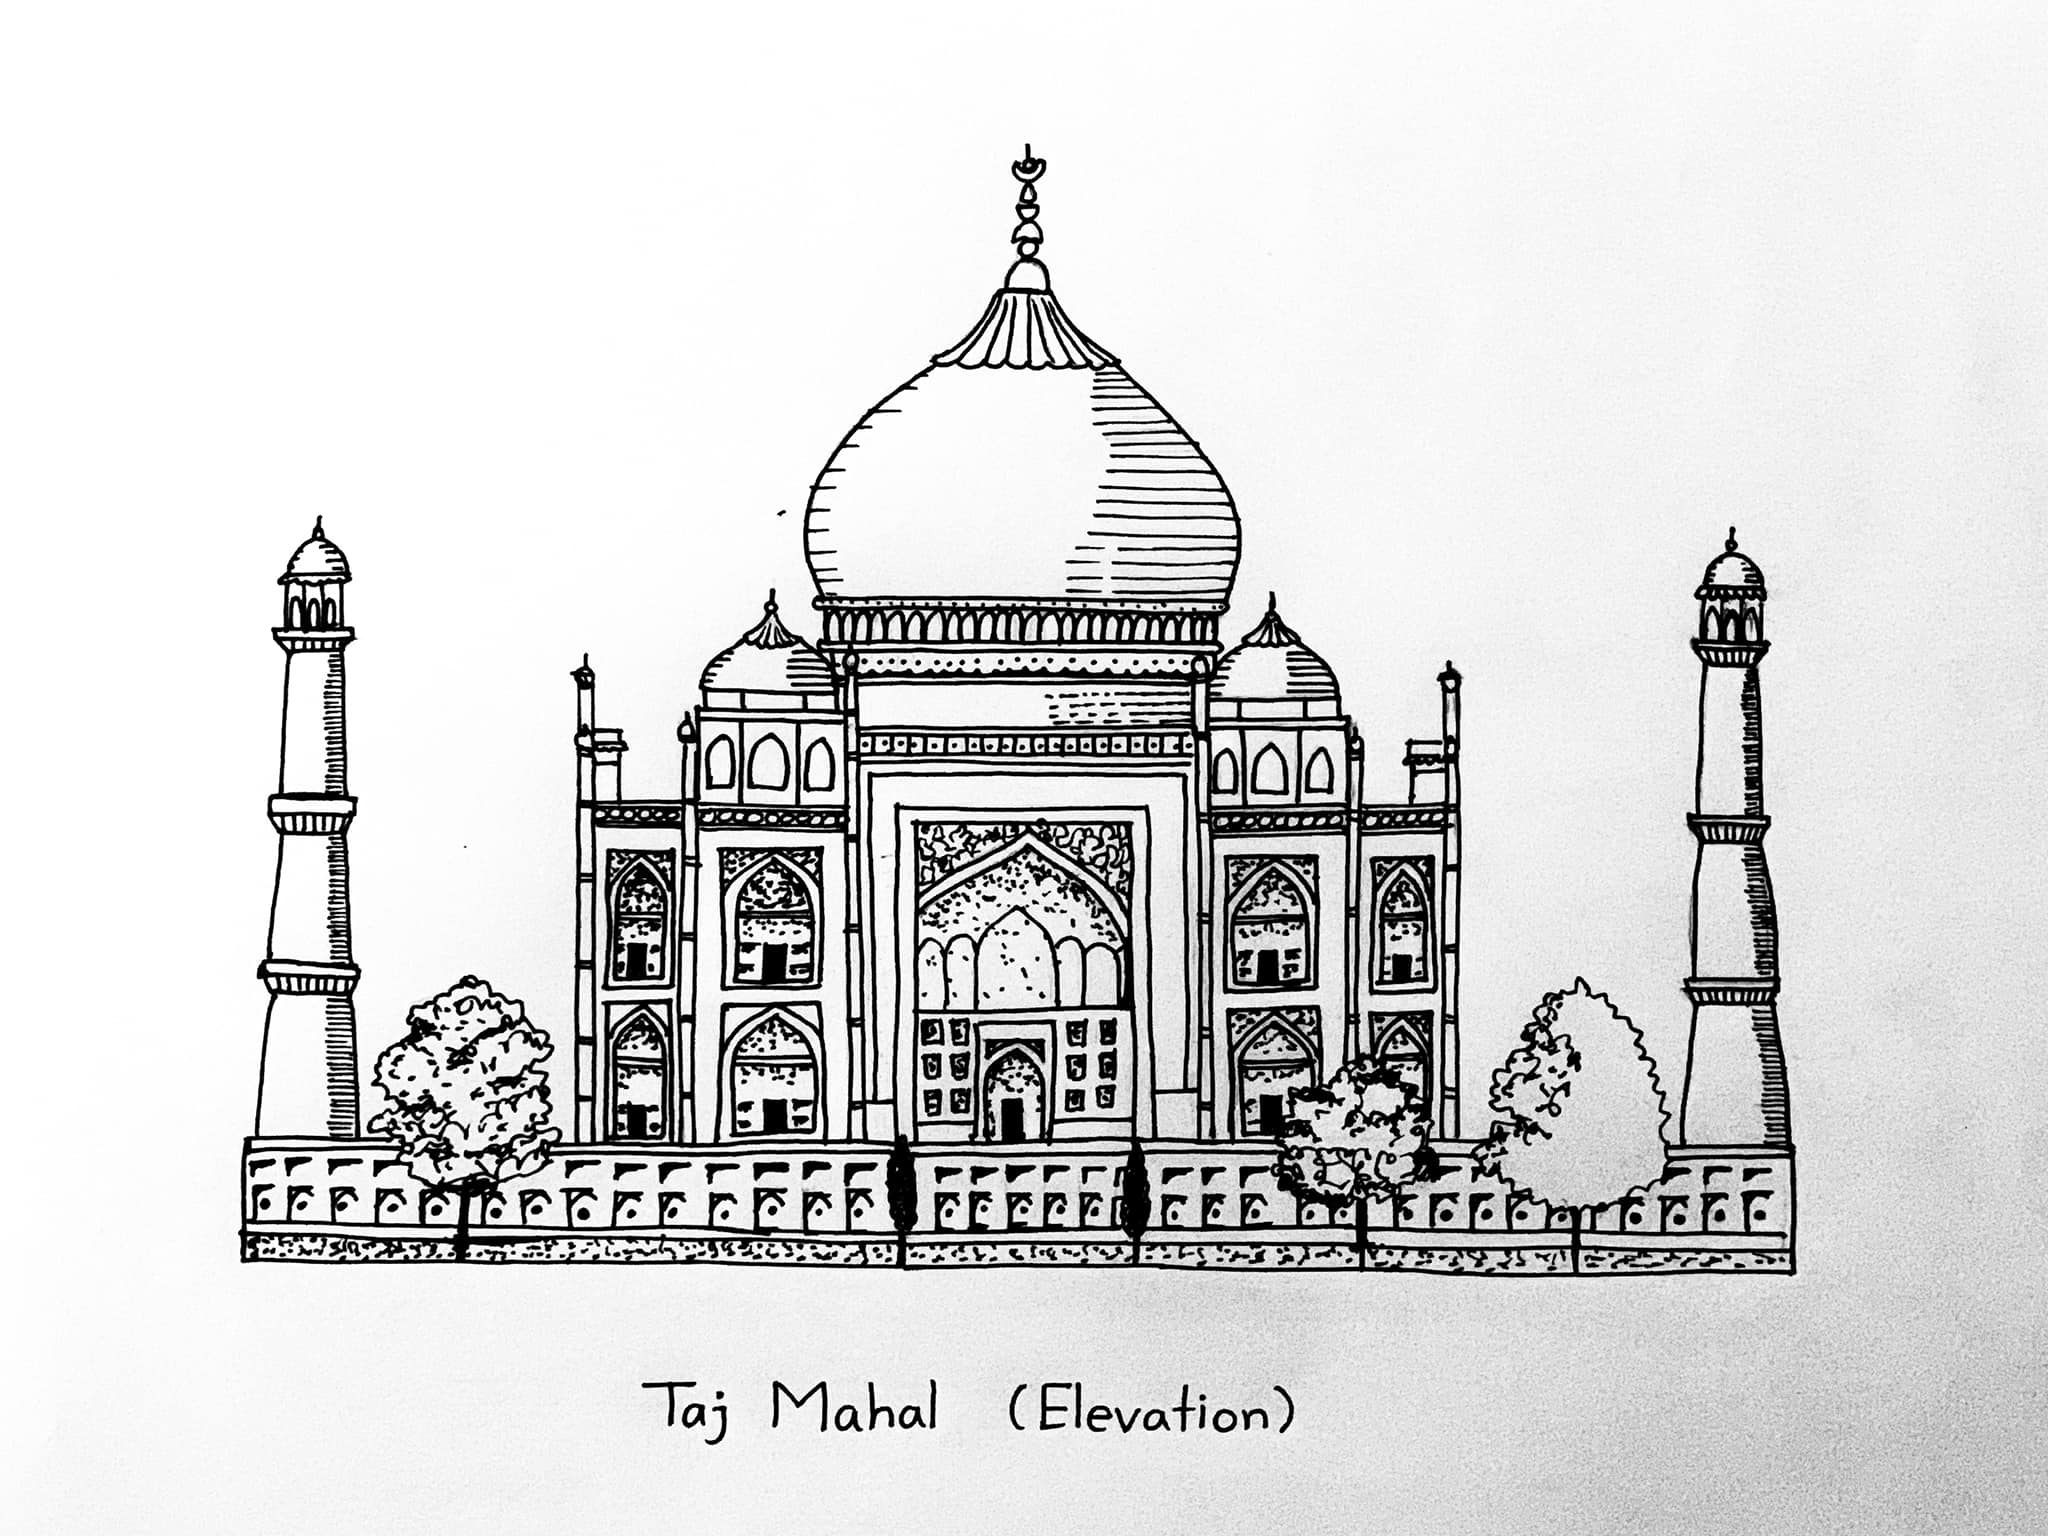 Taj Mahal (Elevation)